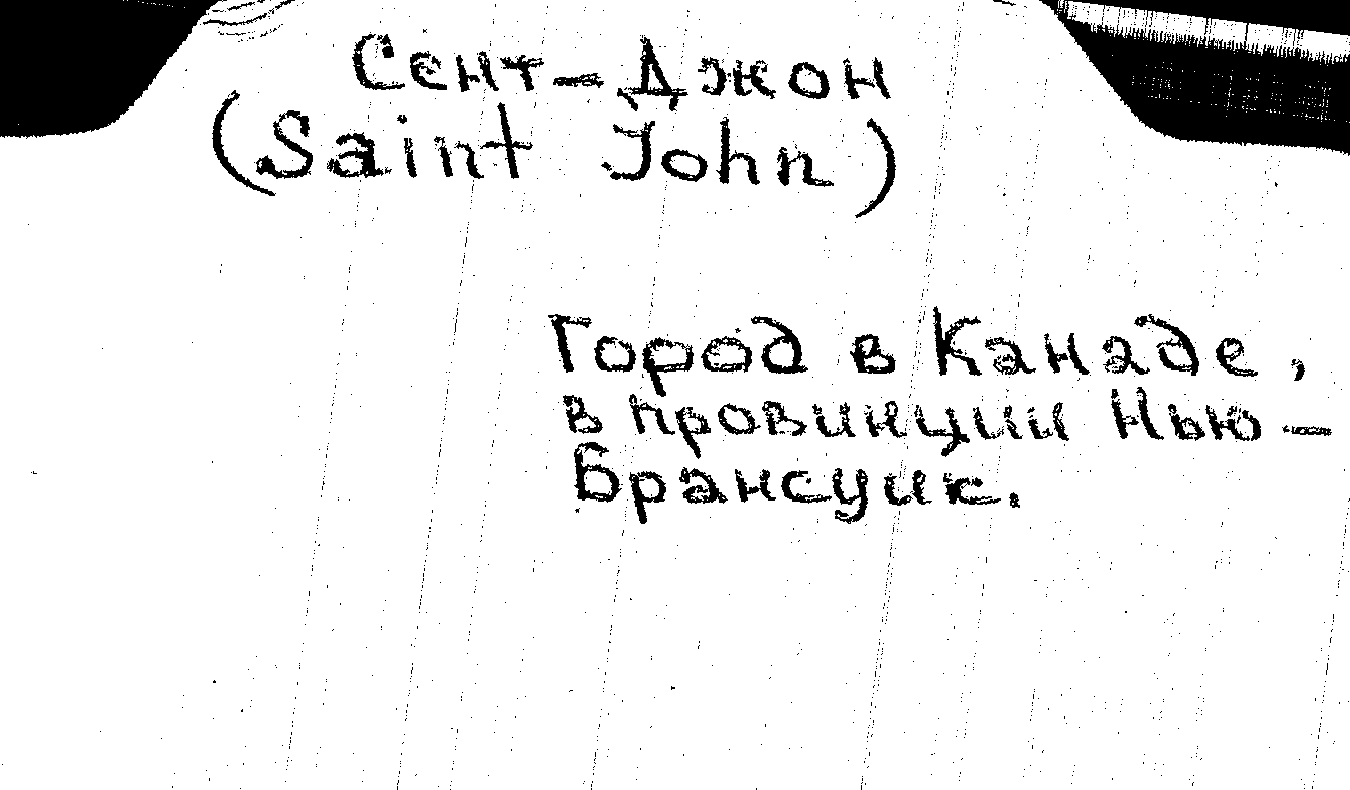 Сент-Джон
(Saint John)
Город в Канаде,
в провинции Нью-
Брансуик.